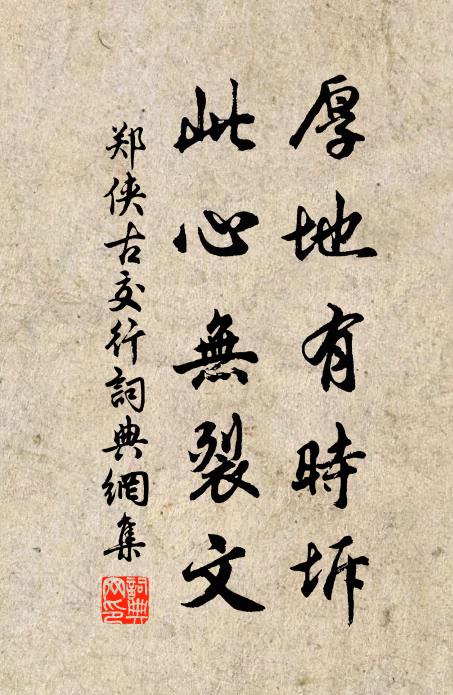 厚地有時坼
此心無裂文
郑侠古交行詞典網集
詞典網印